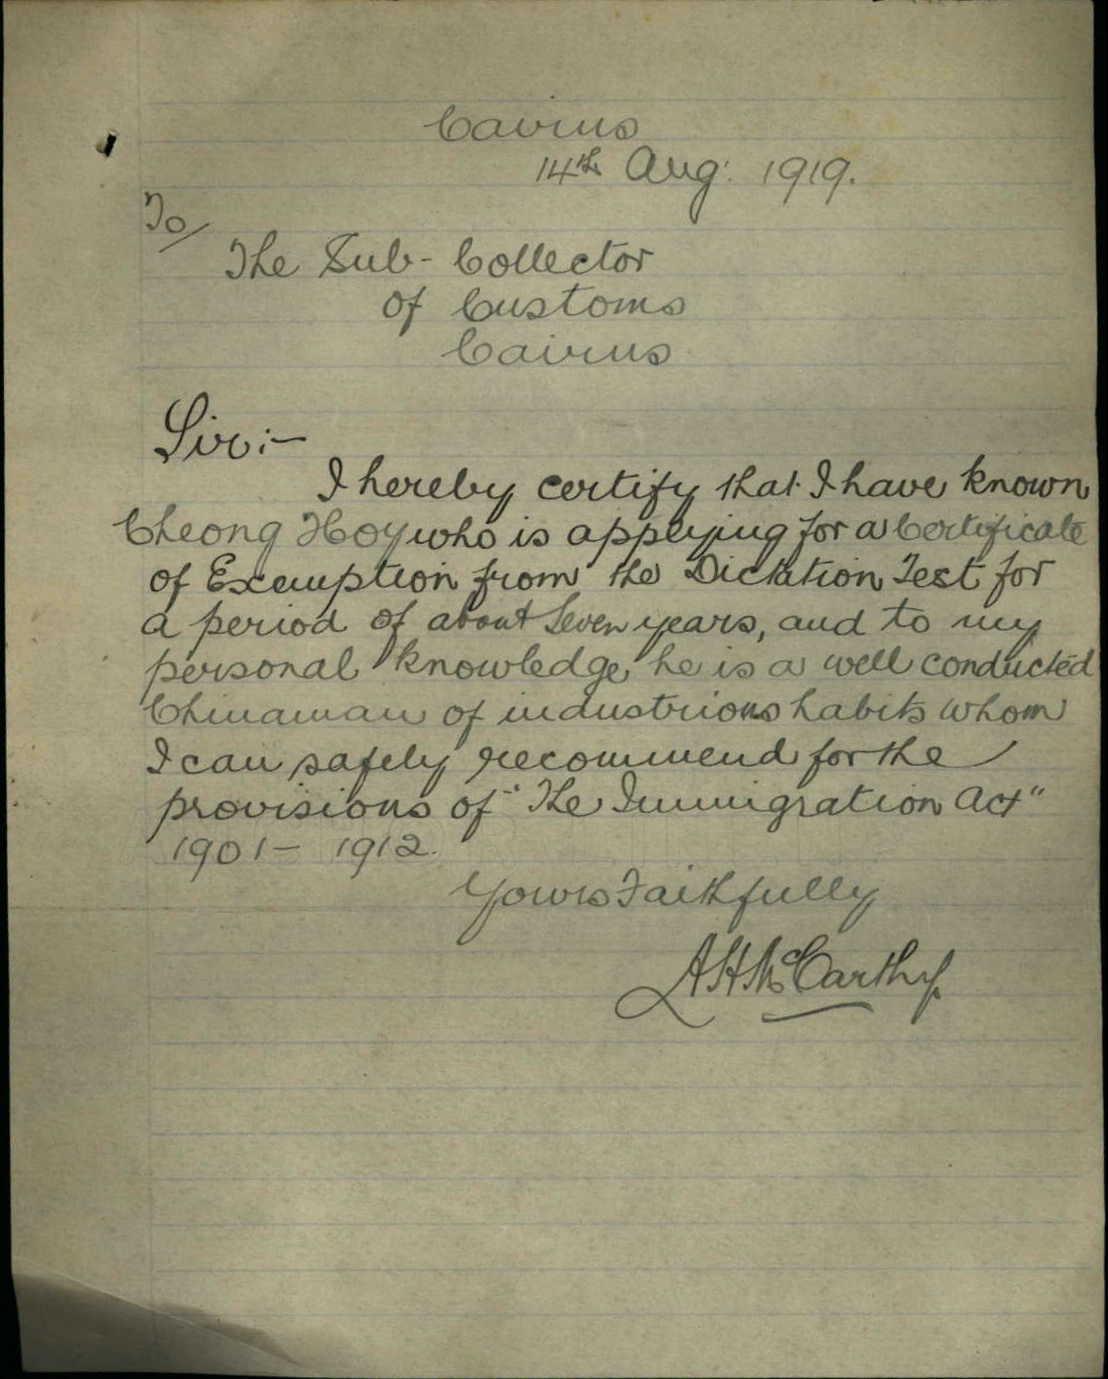 Cairns
14th Aug: 1919.
To/
The Sub-Collector
of Customs
Cairns
Sir:-
I hereby certify that I have known
Cheong Hoy who is applying for a Certificate
of Exemption from the Dictation Test for
a period of about Seven years, and to my
personal knowledge he is a well conducted
Chinaman of industrious habits whom
I can safely recommend for the
provisions of "The Immigration Act"
1901 - 1912.
Yours Faithfully
A H McCarthy